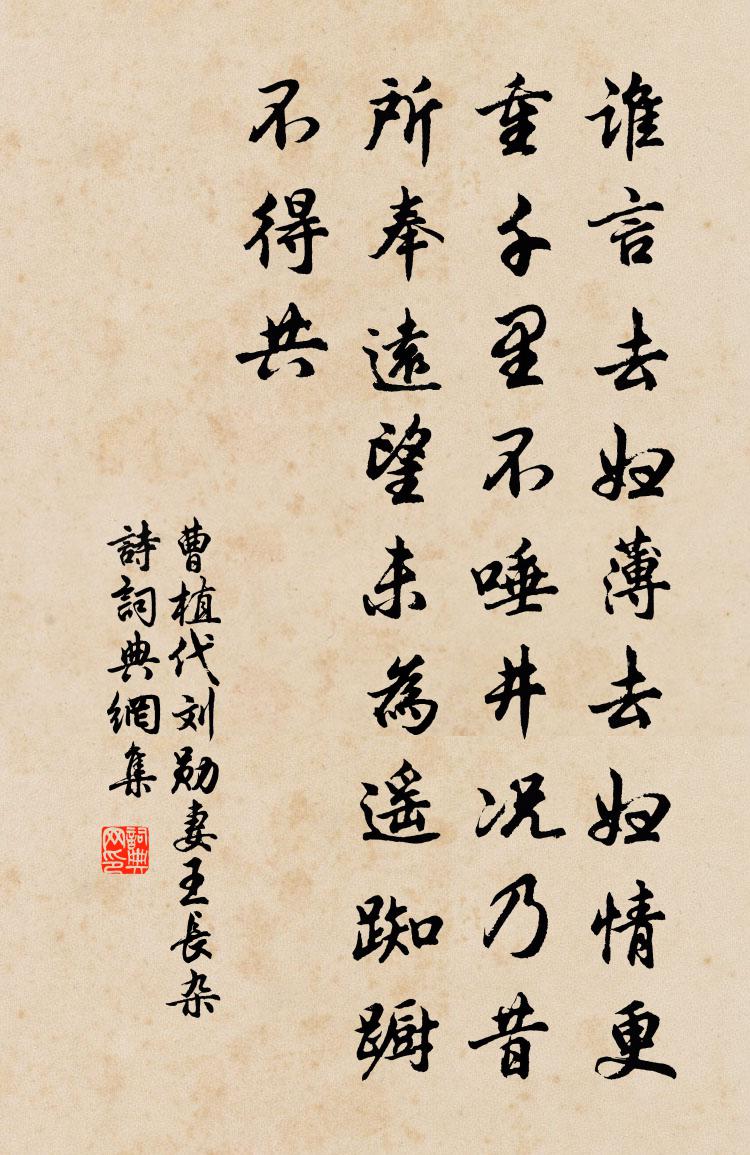 谁言去妇薄去妇情更
重千里不唾井况乃昔
所奉遠望未為遥踟蹰
不得共
曹植代刘勋妻王長杂
詩詞典網集
詞典
网印